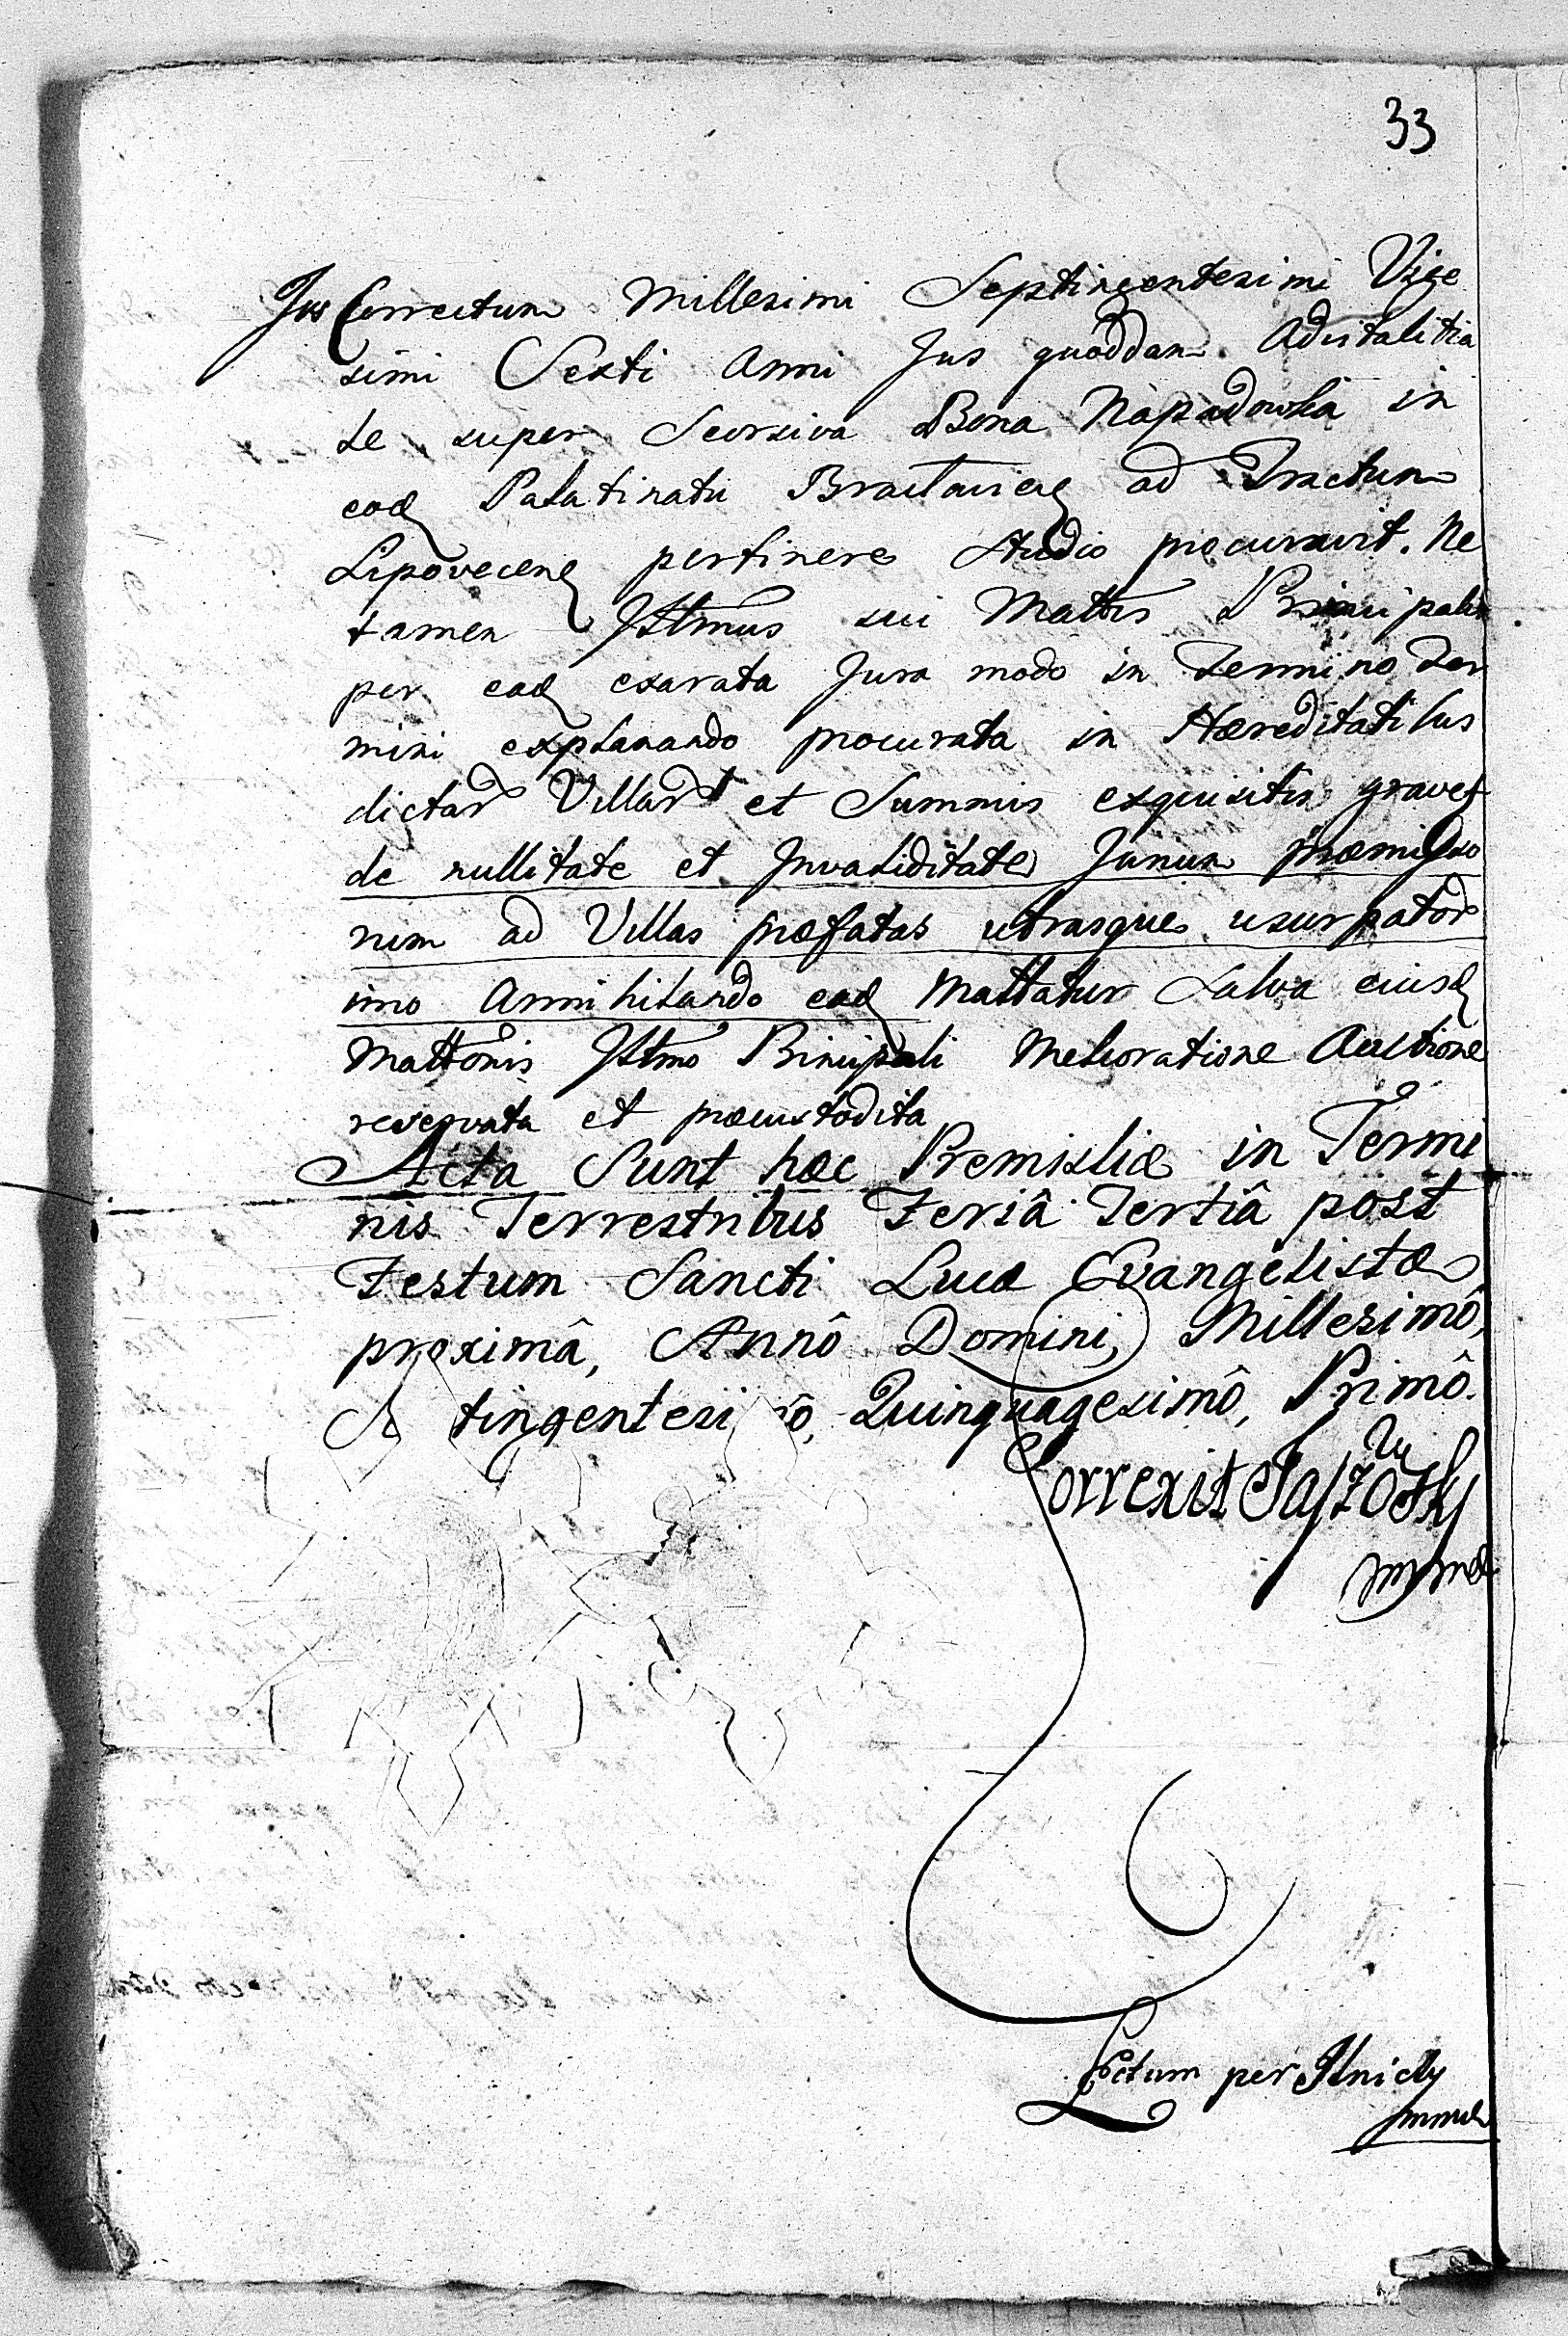 33
Jus Correctum Millesimi Septingentesimi Vige
simi Sexti Anni Jus quoddam Advitalitia
te super Seorsiva Bona Napadowka in
eod Palatinatu Braclavien ad Tractum
Lipovecen pertinere studio procuravit. Ne
tamen Illmus sui Mattis Principalis
per ead exarata Jura modo in Termino Ter
mini explanando procurata in Hæreditatibus
dictar Villar et Summis exquisitis gravet
de nullitate et Invaliditate Jurium præmisso
rum ad Villas præfatas utrasque usurpator
imo Annihilando ead Mattatur Salva eiusd
Mattonis Illmo Principali Melioratione Auctione
reservata et præcustodita
Acta Sunt hæc Premisliæ in Termi
nis Terrestribus Feriâ Tertiâ post
Festum Sancti Lucæ Evangelistæ
proximâ, Annô Domini, Millesimô,
S tingentesi ô, Quinquagesimô, Primô.
Correxit
mmp
Lectum per
mmp